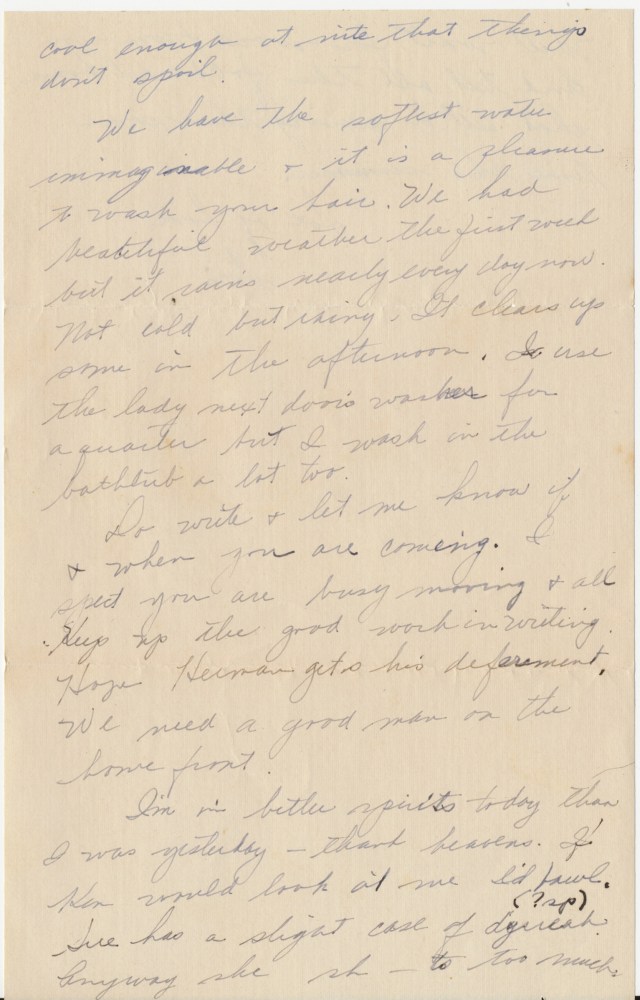 cool enough at nite that things
don't spoil.
We have the softest water
immaginable & it is a pleasure
to wash your hair. We had
beatiful weather the first week
but it rains nearly every day now.
Not cold but rainy. It clears up
some in the afternoon. I use
the lady next door's washer for
a quarter but I wash in the
bathtub a lot too.
Do write & let me know if
& when you are coming. I
spect you are busy moving & all
Keep up the good work in writing.
Hope Herman gets his deferment.
We need a good man on the
home front.
I'm in better spirits today than
I was yesterday – thank heavens. If
Ken would look at me I'd bawl.
(?sp)
Sue has a slight case of
Anyway she sh – ts too much.